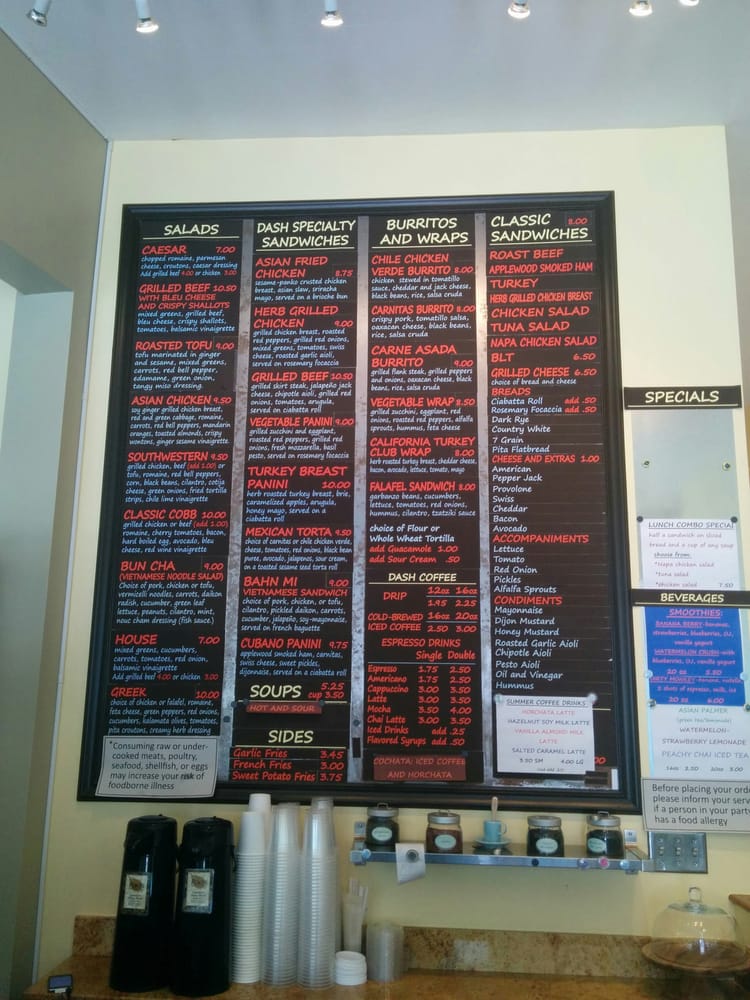 SALADS
CAESAR 7.00
chopped romaine, parmesan
cheese, croutons, caesar dressing
Add grilled beef 4.00 or chicken 3.00
GRILLED BEEF 10.50
WITH BLEU CHEESE
AND CRISPY SHALLOTS
mixed greens, grilled beef,
bleu cheese, crispy shallots,
tomatoes, balsamic vinaigrette
ROASTED TOFU 9.00
tofu marinated in ginger
and sesame, mixed greens,
carrots, red bell pepper,
edamame, green onion,
tangy miso dressing.
ASIAN CHICKEN 9.50
soy ginger grilled chicken breast,
red and green cabbage, romaine,
carrots, red bell peppers, mandarin
oranges, toasted almonds, crispy
wontons, ginger sesame vinaigrette
SOUTHWESTERN 9.50
grilled chicken, beef (add 1.00) or
tofu, romaine, red bell peppers,
corn, black beans, cilantro, cotija
cheese, green onions, fried tortilla
strips, chile lime vinaigrette
CLASSIC COBB 10.00
grilled chicken or beef (add 1.00)
romaine, cherry tomatoes, bacon,
hard boiled egg, avocado, bleu
cheese, red wine vinaigrette
BUN CHA 9.00
(VIETNAMESE NOODLE SALAD)
Choice of pork, chicken or tofu,
vermicelli noodles, carrots, daikon
radish, cucumber, green leaf
lettuce, peanuts, cilantro, mint,
nouc cham dressing (fish sauce)
HOUSE 7.00
mixed greens, cucumbers,
carrots, tomatoes, red onion,
balsamic vinaigrette
Add grilled beef 4.00 or chicken 3.00
GREEK 10.00
choice of chicken or falafel, romaine,
feta cheese, green peppers, red onions,
cucumbers, kalamata olives, tomatoes,
pita croutons, creamy herb dressing
*Consuming raw or under-
cooked meats, poultry,
seafood, shellfish, or eggs
may increase your risk of
foodborne illness
DASH SPECIALTY
SANDWICHES
ASIAN FRIED
CHICKEN 8.75
sesame-panko crusted chicken
breast, asian slaw, sriracha
mayo, served on a brioche bun
HERB GRILLED
CHICKEN 9.00
grilled chicken breast, roasted
red peppers, grilled red onions,
mixed greens, tomatoes, swiss
cheese, roasted garlic aioli,
served on rosemary focaccia
GRILLED BEEF 10.50
grilled skirt steak, jalapeño jack
cheese, chipotle aioli, grilled red
onions, tomatoes, arugula,
served on ciabatta roll
VEGETABLE PANINI 9.00
grilled zucchini and eggplant,
roasted red peppers, grilled red
onions, fresh mozzarella, basil
pesto, served on rosemary focaccia
TURKEY BREAST
PANINI 10.00
herb roasted turkey breast, brie,
caramelized apples, arugula,
honey mayo, served on a
ciabatta roll
MEXICAN TORTA 9.50
choice of carnitas or chile chicken verde,
cheese, tomatoes, red onions, black bean
puree, avocado, jalapenos, sour cream,
on a toasted sesame seed torta roll
BAHN MI 9.00
VIETNAMESE SANDWICH
choice of pork, chicken, or tofu,
cilantro, pickled daikon, carrots,
cucumber, jalapeño, soy-mayonnaise,
served on french baguette
CUBANO PANINI 9.75
applewood smoked ham, carnitas,
swiss cheese, sweet pickles,
dijonnaise, served on a ciabatta roll
SOUPS 5.25
cup 3.50
HOT AND SOUR
SIDES
Garlic Fries 3.45
French Fries 3.00
Sweet Potato Fries 3.75
BURRITOS
AND WRAPS
CHILE CHICKEN
VERDE BURRITO 8.00
chicken stewed in tomatillo
sauce, cheddar and jack cheese,
black beans, rice, salsa cruda
CARNITAS BURRITO 8.00
crispy pork, tomatillo salsa,
oaxacan cheese, black beans,
rice, salsa cruda
CARNE ASADA
BURRITO 9.00
grilled flank steak, grilled peppers
and onions, oaxacan cheese, black
beans, rice, salsa cruda
VEGETABLE WRAP 8.50
grilled zucchini, eggplant, red
onions, roasted red peppers, alfalfa
sprouts, hummus, feta cheese
CALIFORNIA TURKEY
CLUB WRAP 8.00
herb roasted turkey breast, cheddar cheese,
bacon, avocado, lettuce, tomato, mayo
FALAFEL SANDWICH 8.00
garbanzo beans, cucumbers,
lettuce, tomatoes, red onions,
hummus, cilantro, tzatziki sauce
choice of Flour or
Whole Wheat Tortilla
add Guacamole 1.00
add Sour Cream .50
DASH COFFEE
12oz 16oz
DRIP 1.95 2.25
COLD-BREWED 16oz 20oz
ICED COFFEE 2.50 3.00
ESPRESSO DRINKS
Single Double
Espresso 1.75 2.50
Americano 1.75 2.50
Cappuccino 3.00 3.50
Latte 3.00 3.50
Mocha 3.50 4.00
Chai Latte 3.00 3.50
Iced Drinks add .25
Flavored Syrups add .50
COCHATA: ICED COFFEE
AND HORCHATA
CLASSIC 8.00
SANDWICHES
ROAST BEEF
APPLEWOOD SMOKED HAM
TURKEY
HERB GRILLED CHICKEN BREAST
CHICKEN SALAD
TUNA SALAD
NAPA CHICKEN SALAD
BLT 6.50
GRILLED CHEESE 6.50
choice of bread and cheese
BREADS
Ciabatta Roll add .50
Rosemary Focaccia add .50
Dark Rye
Country White
7 Grain
Pita Flatbread
CHEESE AND EXTRAS 1.00
American
Pepper Jack
Provolone
Swiss
Cheddar
Bacon
Avocado
ACCOMPANIMENTS
Lettuce
Tomato
Red Onion
Pickles
Alfalfa Sprouts
CONDIMENTS
Mayonnaise
Dijon Mustard
Honey Mustard
Roasted Garlic Aioli
Chipotle Aioli
Pesto Aioli
Oil and Vinegar
Hummus
SUMMER COFFEE DRINKS
HORCHATA LATTE
HAZELNUT SOY MILK LATTE
VANILLA ALMOND MILK
LATTE
SALTED CARAMEL LATTE
3.50 SM 4.00 LG
SPECIALS
LUNCH COMBO SPECIAL
half a sandwich on sliced
bread and a cup of any soup
choose from:
*Napa chicken salad
*tuna salad
*chicken salad 7.50
BEVERAGES
SMOOTHIES:
BANANA BERRY-bananas,
strawberries, blueberries, OJ,
vanilla yogurt
WATERMELON CRUSH-with
blueberries, OJ, vanilla yogurt
20 oz 5.50
MONKEY-banana, nutella
2 shots of espresso, milk, ice
20 oz 6.00
ASIAN PALMER
(green tea/lemonade)
WATERMELON-
STRAWBERRY LEMONADE
PEACHY CHAI ICED TEA
16oz 2.50 20oz 3.00
Before placing your order
please inform your server
if a person in your party
has a food allergy